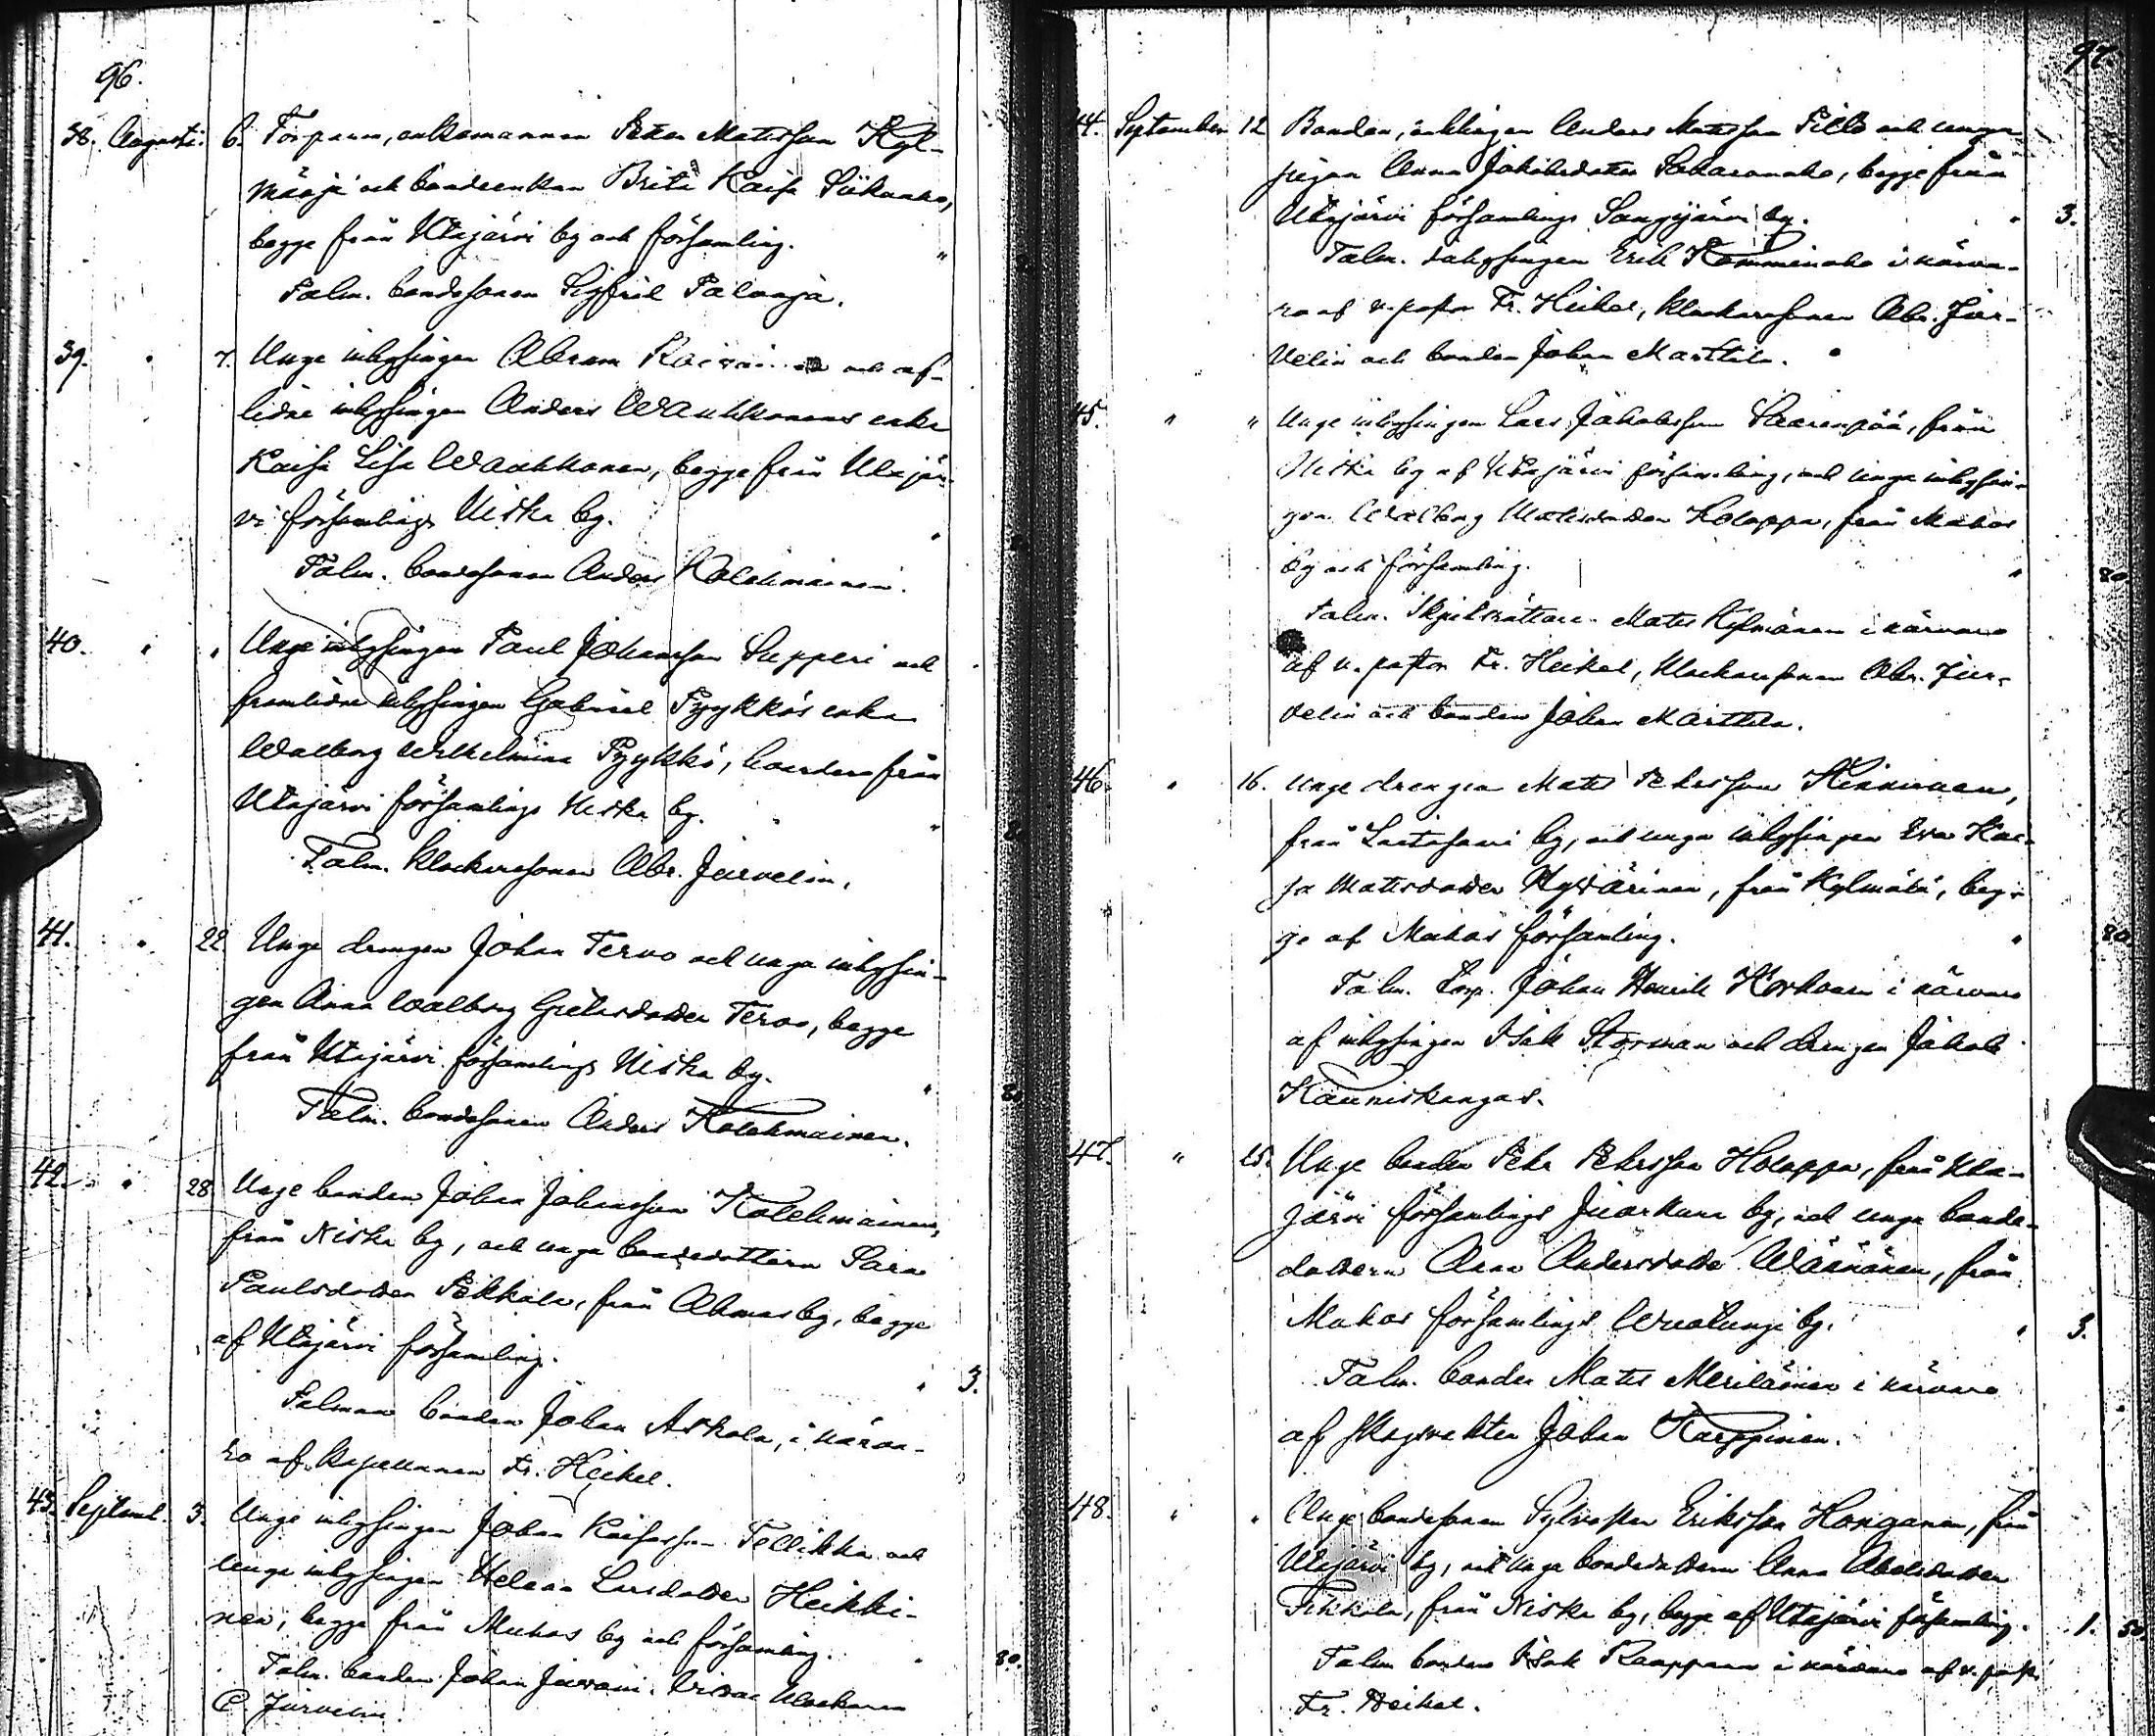 96.
38. Augusti. 6. Torparen, enkemannen Petter Matsson Kyl-
mäoja och bondeenkan Brita Kaisa
begge från Utajärvi by och församling. "
Talm. bondesonen Sigfrid Palonja.
39. " 7. Unge inhysingen Abram och af-
lidne inhysingen Anders Waukkonens enka
Kaisa Lisa Waukkonen, begge från Utajär-
vi församlings Niska by. "
Talm. bondesonen Anders Kolehmainen.
40. " " Unge inhysingen Paul Johansson Supperi och
framlidne inhysingen Gabriel Pyykkös enka
Walborg Wilhelmina Pyykkö, från
Utajärvi församlings Niska by. "
Talm. klockaresonen Abr. Jurvelin.
41. " 22 Unge drengen Johan Tervo och unga inhysin-
gen Anna Walborg Tervo, begge
från Utajärvi församlings Niska by. " 80
Talm. bondesonen Anders Kolehmainen.
42. " 28 Unge bonden Johan Johansson Kolehmainen,
från Niska by, och unga bondedottern Sara
Paulsdotter Pekkala, från Ahmas by, begge
af Utajärvi församling. " 3.
Talman bonden Johan Askola, i närva-
ro af kapellanen Fr. Heikel.
43. Septemb. 3. Unge inhysingen Johan Kaisasson Tellikka och
unga inhysingen Helena Larsdotter Heikki-
nen, begge från Muhos by och församling. " 80.
Talm. bonden Johan klockaren
C. Jurvelin.
97.
44. September 12 Bonden, enklingen Anders Matsson Pillo och unga
pigan Anna Jakobsdotter begge från
Utajärvi församlings Sangijärvi by. " 3.
Talm. inhysingen Erik i närva-
ro af v. pastor Fr. Heikel, klockaresonen Abr. Jur-
velin och bonden Johan Marttila.
45. " " Unge inhysingen Lars Jakobsson Saarenpää, från
Niska by af Utajärvi församling, och unga inhysin-
gen Walborg Matsdotter Holappa, från Muhos
by och församling. " 80
Talm. Matts Kylmänen i närvaro
af v. pastor Fr. Heikel, klockaresonen Abr. Jur-
velin och bonden Johan Marttila.
46. " 16. Unge drengen Matts Pehrsson Kinnunen,
från by, och unga inhysingen Eva Kai-
sa Matsdotter från Kylmälä, beg-
ge af Muhos församling. " 80
Talm. Torp. Johan Henrik Korhonen i närvaro
af inhysingen Isak Storman och drengen Jakob
Kauniskangas.
47. " 25. Unge bonden Pehr Pehrsson Holappa, från Uta-
järvi församlings Juorkuna by, och unga bonde-
dottern Anna Andersdotter Wäänänen, från
Muhos församlings by. " 3.
Talm. bonden Matts Meriläinen i närvaro
af skogvakten Johan Karppinen.
48. " " Unge bondesonen Sylvester Eriksson Honganen, från
Utajärvi by, och unga bondedottern Anna Abelsdotter
Pekkala, från Niska by, begge af Utajärvi församling. 1. 50
Talm. bonden Isak Raappana i närvaro af v. past.
Fr. Heikel.